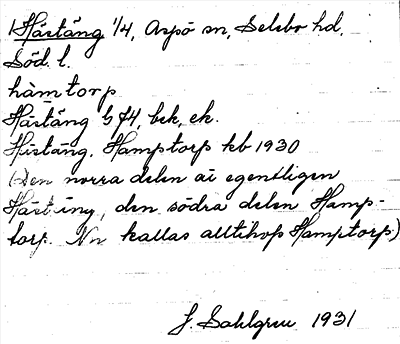 Hästäng 1/4, Aspö sn, Selebo hd,
Söd. l.
hàmtorp
Hästäng G74, bek, ek.
Hästäng, Hamptorp kb 1930
(Den norra delen är egentligen
Hästäng, den södra delen Hamp-
torp. Nu kallas alltihop Hamptorp)
J. Sahlgren 1931